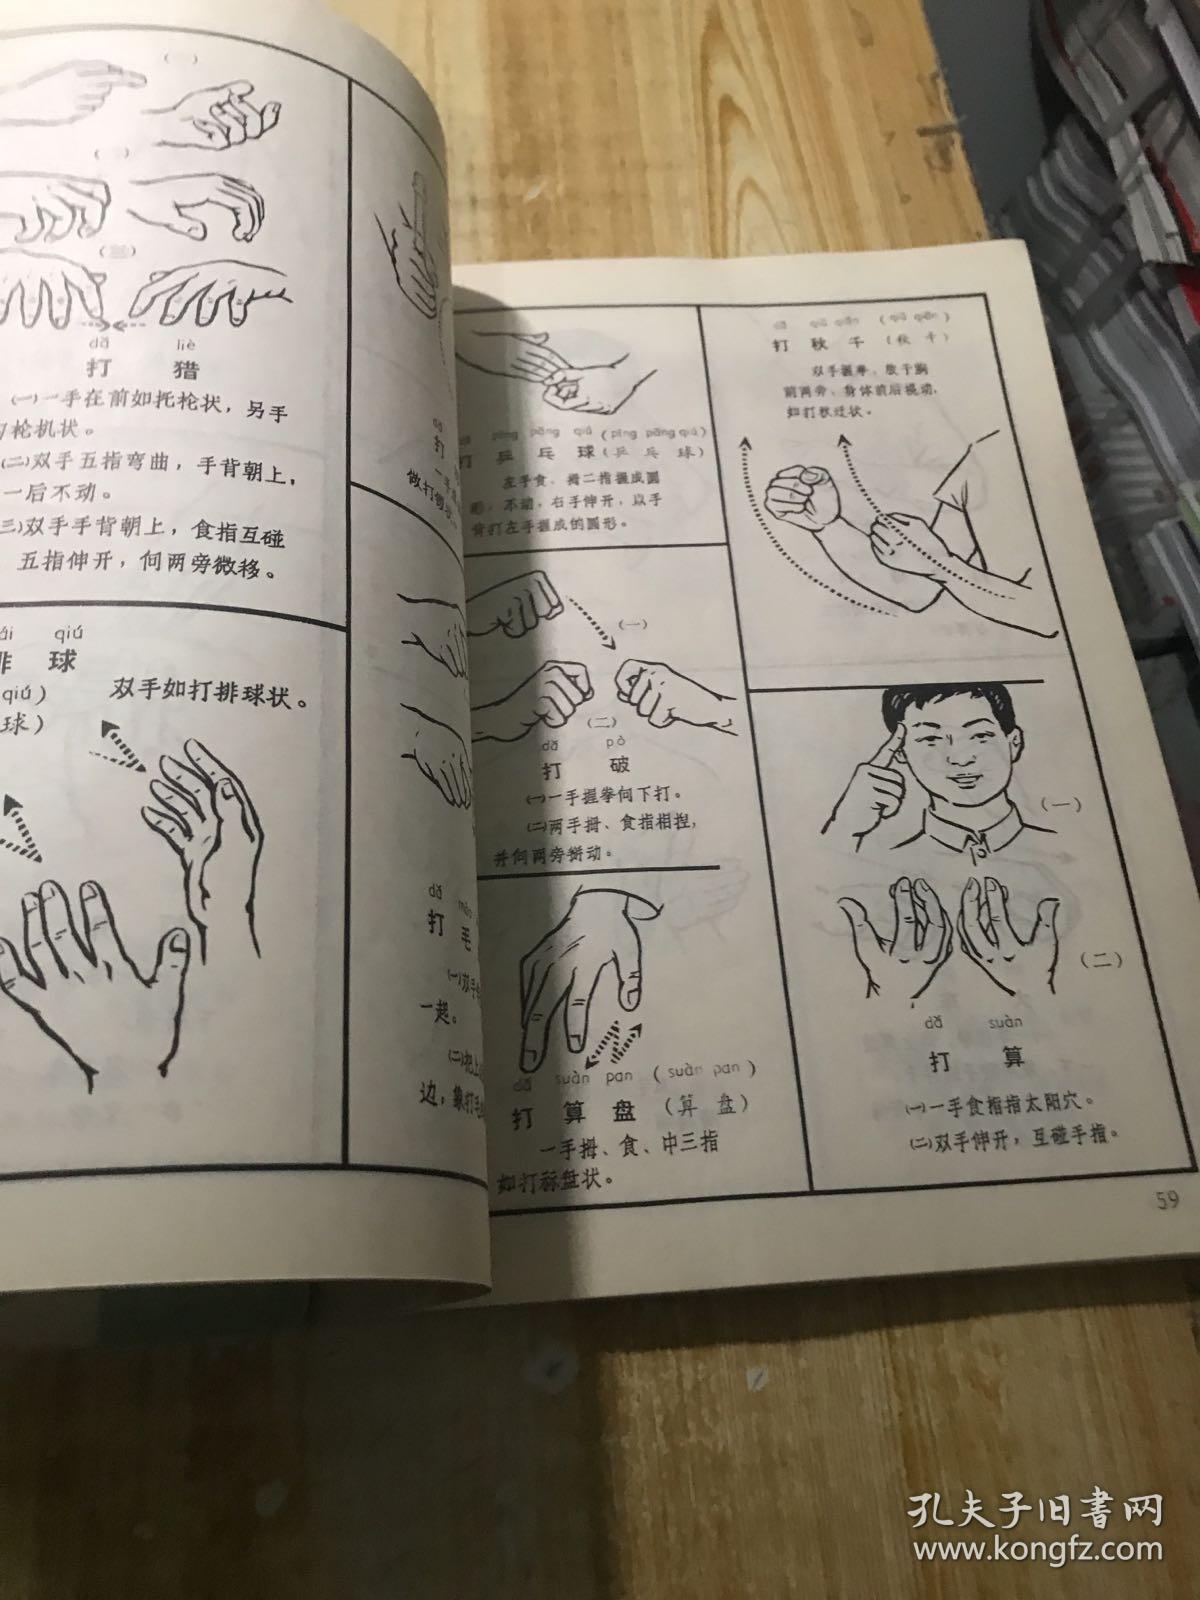 (三)
dǎ liè
打 猎
㈠一手在前如托枪状，另手
枪机状。
㈡双手五指弯曲，手背朝上，
一后不动。
三)双手手背朝上，食指互碰
五指伸开，向两旁微移。
qiú
球
qiú)
球)
双手如打排球状。
dǎ
打
dǎ
打 毛
一起。
dǎ pīng pāng qiú (pīng pāng qiú)
打 乒 乓 球 (乒 乓 球)
左手食、拇二指握成圆
形，不动，右手伸开，以手
背打左手握成的圆形。
(一)
(二)
dǎ pò
打 破
㈠一手握拳向下打。
㈡两手拇、食指相捏，
并向两旁掰动。
dǎ suàn pan (suàn pan)
打 算 盘 (算 盘)
一手拇、食、中三指
如打算盘状。
dǎ qiū qiān (qiū qiān)
打 秋 千 (秋 千)
双手握拳，放于胸
前两旁，身体前后晃动，
如打秋迁状。
(一)
(二)
dǎ suàn
打 算
㈠一手食指指太阳穴。
㈡双手伸开，互碰手指。
59
孔夫子旧书网
www.kongfz.com